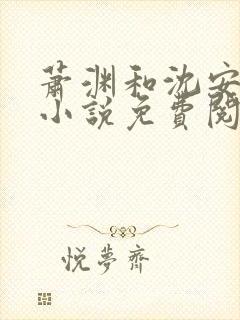 萧渊和沈安
小說免費閱
悅夢齋